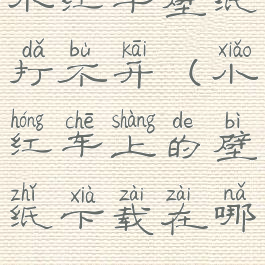 水红车壁纸
dǎ bù kāi xiǎo
打不开（小
hóng chē shàng de bì
红车上的壁
zhǐ xià zài zài nǎ
纸下载在哪